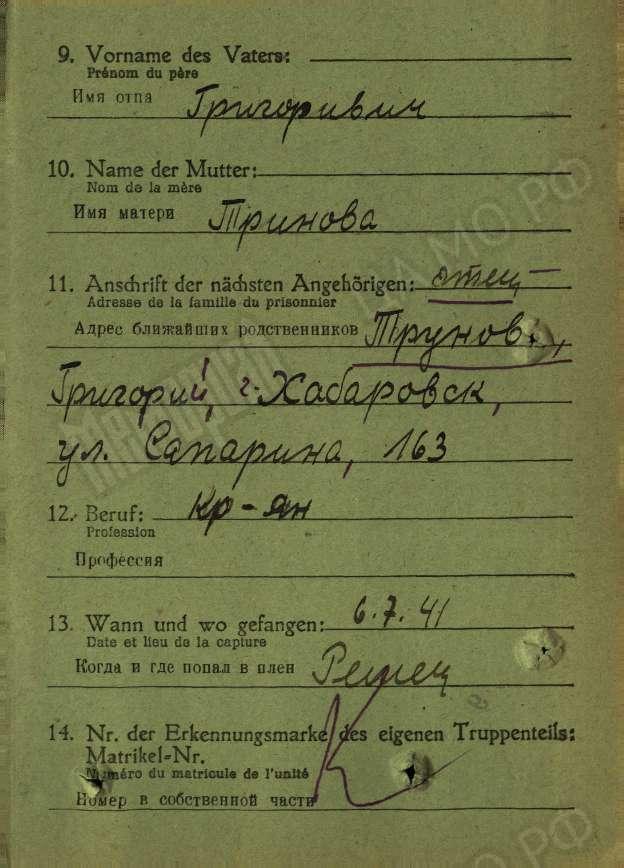 9. Vorname des Vaters:
Prénom du père
Имя отца
Григоривич
10. Name der Mutter:
Nom de la mère
Имя матери Тринова
11. Anschrift der nächsten Angehörigen: отец -
Adresse de la famille du prisonnier
Адрес ближайших родственников Трунов,
Григорий, г. Хабаровск,
ул. Сапарина, 163
12. Beruf: кр-ян
Profession
Профессия
13. Wann und wo gefangen: 6.7.41
Date et lieu de la capture
Когда и где попал в плен
14. Nr. der Erkennungsmarke des eigenen Truppenteils:
Matrikel=Nr.
Numéro du matricule de l'unité
Номер в собственной части